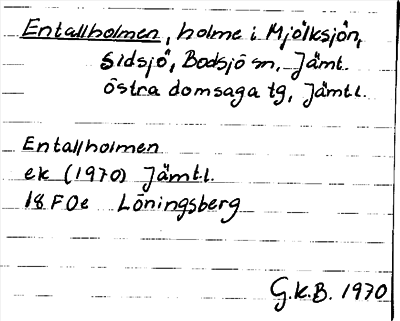 Entallholmen, holme i Mjölksjön,
Sidsjö, Bodsjö sn, Jämt.
östra domsaga tg, Jämtl.
Entallholmen
ek (1970) Jämtl.
18 F 0 e Löningsberg
G.K.B. 1970